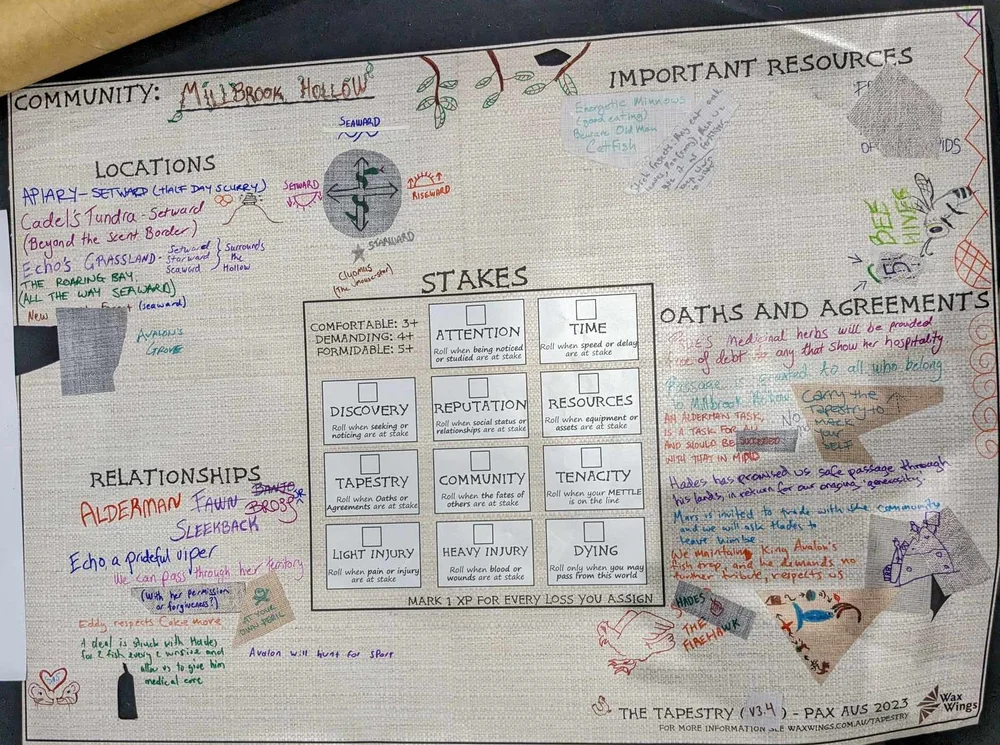 COMMUNITY: MILLBROOK HOLLOW
SEAWARD
SETWARD
RISEWARD
STARWARD
LOCATIONS
APIARY - SETWARD (HALF DAY SCURRY)
Cadel's Tundra - Setward
(Beyond the Scent Border)
Echo's GRASSLAND - Setward
Starward
Seaward
Surrounds
the
Hollow
THE ROARING BAY
(ALL THE WAY SEAWARD)
New
(seaward)
AVALON'S
GROVE
IMPORTANT RESOURCES
Energetic Minnows
(good eating)
Beware Old Man
Catfish
BEE
HIVE
STAKES
COMFORTABLE: 3+
DEMANDING: 4+
FORMIDABLE: 5+
ATTENTION
Roll when being noticed
or studied are at stake
TIME
Roll when speed or delay
are at stake
DISCOVERY
Roll when seeking or
noticing are at stake
REPUTATION
Roll when social status or
relationships are at stake
RESOURCES
Roll when equipment or
assets are at stake
TAPESTRY
Roll when Oaths or
Agreements are at stake
COMMUNITY
Roll when the fates of
others are at stake
TENACITY
Roll when your METTLE
is on the line
LIGHT INJURY
Roll when pain or injury
are at stake
HEAVY INJURY
Roll when blood or
wounds are at stake
DYING
Roll only when you may
pass from this world
MARK 1 XP FOR EVERY LOSS YOU ASSIGN
RELATIONSHIPS
ALDERMAN FAWN
SLEEKBACK
Echo a prideful viper
We can pass through her territory
(with her permission
or forgiveness?)
AT YOUR
OWN PERIL
Eddy respects Cake more
A deal is struck with Hades
for 2 fish every 2 sunrise and
allow us to give him
medical care
Avalon will hunt for sport
OATHS AND AGREEMENTS
medicinal herbs will be provided
free of debt to any that show her hospitality
Passage is granted to all who belong
to Millbrook Hollow
AN ALDERMAN TASK,
IS A TASK FOR ALL
AND SHOULD BE SUCCEEDED
WITH THAT IN MIND
Carry the
Tapestry to
MARK
your
SELF
Hades has promised us safe passage through
his lands, in return for our ongoing 'generosity'
Mars is invited to trade with the community
and we will ask Hades to
leave him be
We maintaing King Avalon's
fish trap, and he demands no
further tribute, respects us
HADES
THE
FIREHAWK
THE TAPESTRY (V3.4) - PAX AUS 2023
FOR MORE INFORMATION SEE WAXWINGS.COM.AU/TAPESTRY
Wax
Wings